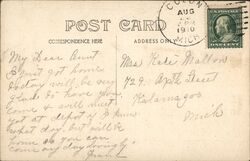 POST CARD
CORRESPONDENCE HERE
ADDRESS ONLY
AUG
1910
MICH
My Dear Aunt
I just got home
to day will be very
glad to have you
come & will meet
you at depot if I know
what day. but will be
home so you can
come any day
Mrs Kate Mallows
729
Kalamazoo
Mich